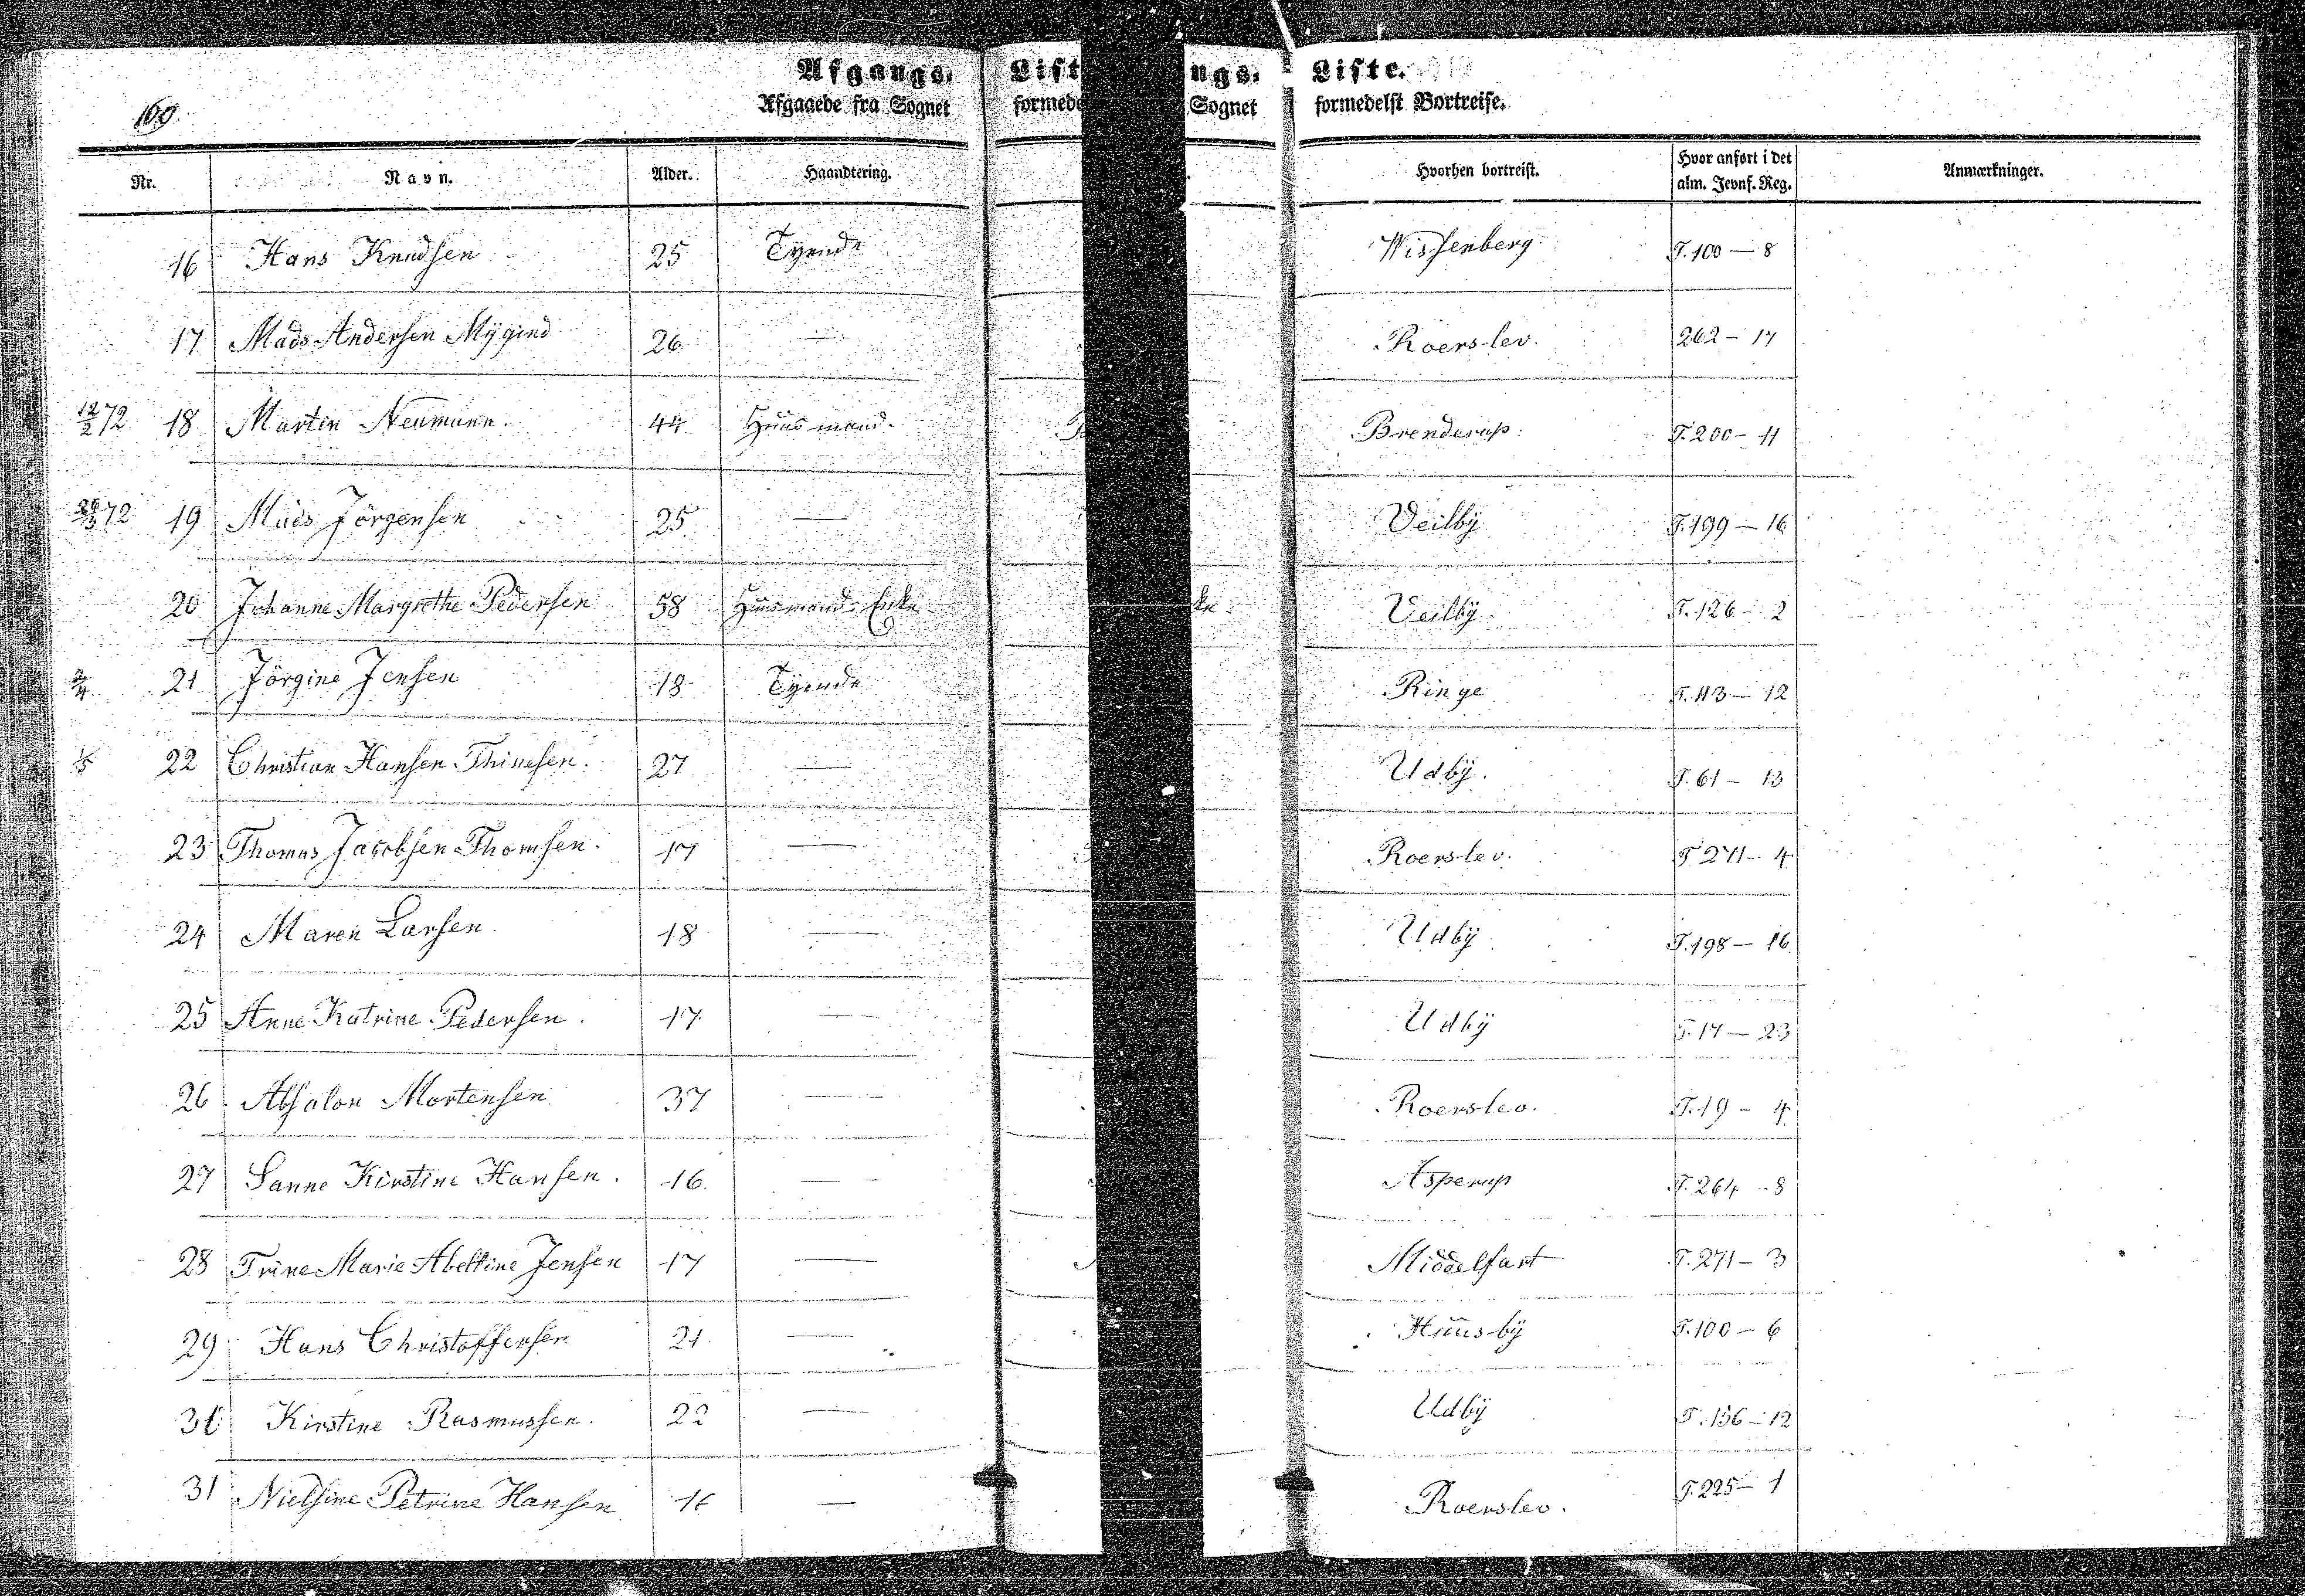 Afgangs- Liste.
Afgaaede fra Sognet formedelst Bortreise.
169
Nr. Navn. Alder. Haandtering. Hvorhen bortreist. Hvor anført i det alm. Jevnf. Reg. Anmærkninger.
16 Hans Knudsen 25 Tyende Wissenberg T. 100 — 8
17 Mads Andersen Mÿgind 26 — Roerslev. 262 — 17
12/2 72 18 Martin Neumann. 44 Huusmand. Brenderup. T. 200 — 11
26/3 72 19 Mads Jörgensen 25 — Veilbÿ T. 199 — 16
20 Johanne Margrethe Pedersen 58 Huusmands Enke Veilbÿ T. 126 — 2
2/4 21 Jörgine Jensen 18 Tyende Ringe T. 113 — 12
1/5 22 Christian Hansen 27 — Udbÿ. T. 61 — 13
23 Thomas Jacobsen Thomsen. 17 — Roerslev. T 271 — 4
24 Maren Larsen. 18 — Udbÿ T. 198 — 16
25 Anne Katrine Pedersen. 17 — Udbÿ T. 17 — 23
26 Absalon Mortensen 37 — Roerslev. T. 19 — 4
27 Sanne Kirstine Hansen. 16. — Asperup T. 264 — 8
28 Trine Marie Jensen 17 — Middelfart T. 271 — 3
29 Hans Christoffersen 21 — Huusbÿ T. 100 — 6
30 Kirstine Rasmussen. 22 — Udbÿ T. 156 — 12
31 Nielsine Petrine Hansen 16 — Roerslev. T. 225 — 1